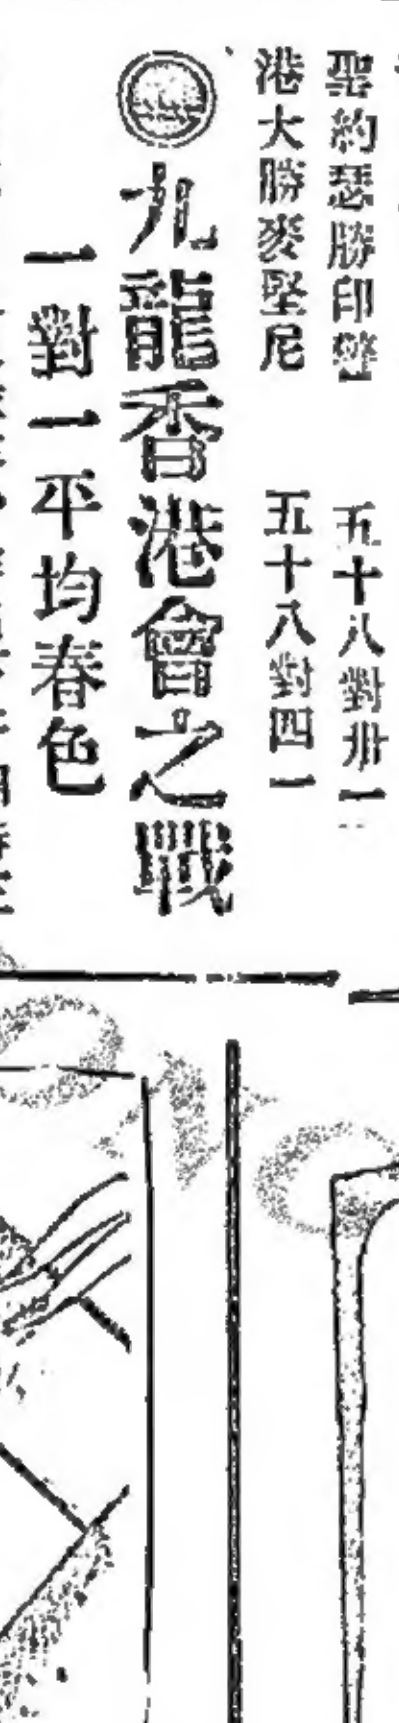 聖約瑟勝印警 五十八對卅一
港大勝麥堅尼 五十八對四一
九龍香港會之戰
一對一平均春色